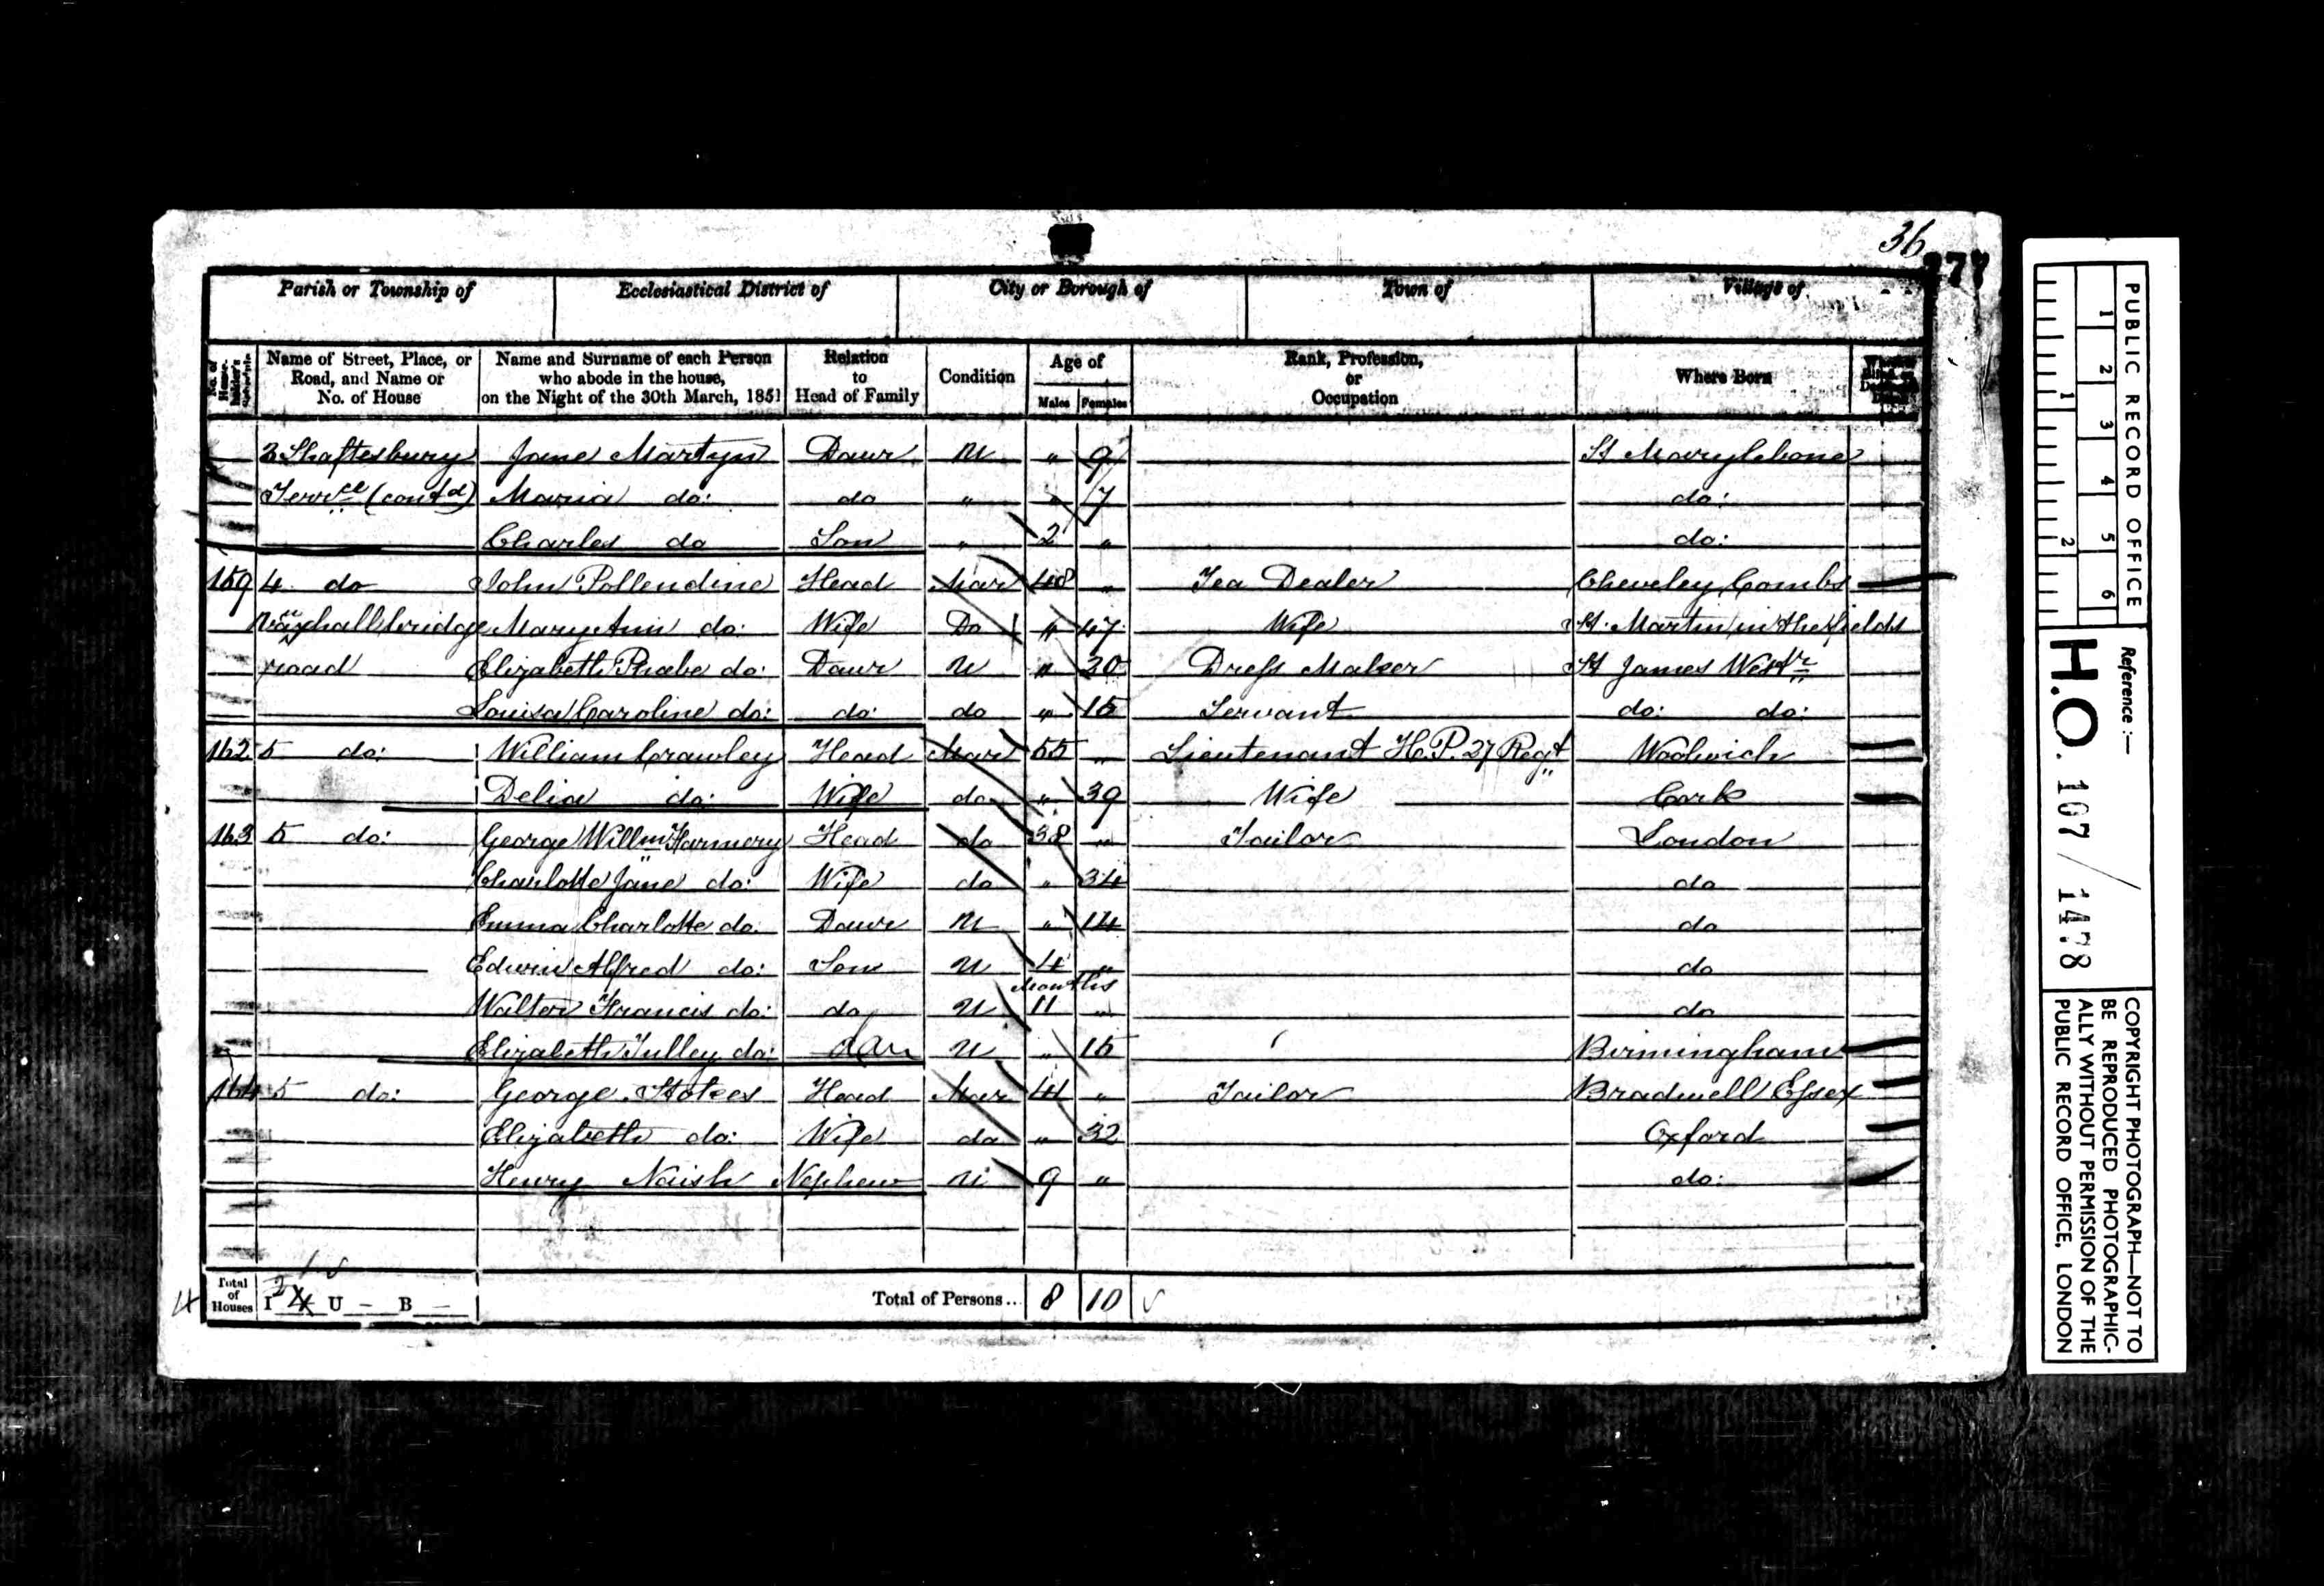 36
277
Parish or Township of Ecclesiastical District of City or Borough of Town of Village of
No. of House-holder's Schedule
Name of Street, Place, or Road, and Name or No. of House
Name and Surname of each Person who abode in the house, on the Night of the 30th March, 1851
Relation to Head of Family
Condition
Age of
Males Females
Rank, Profession, or Occupation
Where Born
Whether Blind, or Deaf-and-Dumb
3 Shaftesbury Jane Martyn Daur U " 9 St Marylebone
Terrce (contd) Maria do: do " " 7 do:
Charles do Son " 2 " do:
159 4 do John Pollendine Head Mar 48 " Tea Dealer Cheveley Cambs
Vauxhall bridge Mary Ann do: Wife Do " 47 Wife St. Martin in the fields
road Elizabeth Phebe do: Daur U " 20 Dress Maker St James Westr
Louisa Caroline do: do: do " 15 Servant do: do:
162 5 do: William Crawley Head Mar 55 " Lieutenant H.P. 27 Regt Woolwich
Delia do: Wife do " 39 Wife Cork
163 5 do: George Willm Harmery Head do 38 " Tailor London
Charlotte Jane do: Wife do " 34 do
Emma Charlotte do: Daur U " 14 do
Edwin Alfred do: Son U 4 " do
Months
Walter Francis do: do U 11 " do
Elizabeth Tulley do: dau U " 15 Birmingham
164 5 do: George Stokes Head Mar 41 " Tailor Bradwell Essex
Elizabeth do: Wife do " 32 Oxford
Henry Naish Nephew U 9 " do:
4 Total of Houses I 2 4 U — B — Total of Persons... 8 10
PUBLIC RECORD OFFICE
1 2 3 4 5 6
1 2
Reference :—
H.O. 107 / 1478
COPYRIGHT PHOTOGRAPH—NOT TO
BE REPRODUCED PHOTOGRAPHIC-
ALLY WITHOUT PERMISSION OF THE
PUBLIC RECORD OFFICE, LONDON